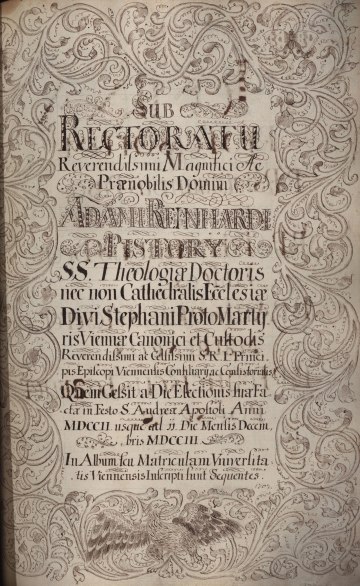 SUB
RECTORATU
Reverendissimi Magnifici Ac
Prænobilis Domini
ADAMI REINHARDI
PISTORY
S.S. Theologiæ Doctoris
nec non Cathedralis Ecclesiæ
Divi Stephani ProtoMarty
ris Viennæ Canonici et Custodis
Reverendissimi ac Celsissimi S. R. I. Princi
pis Episcopi Viennensis Consiliarij, ac Consistorialis
Quem Gessit a Die Electionis suæ Fa
ctæ in Festo S. Andreæ Apostoli Anni
MDCCII usque ad Diem Mensis Decem
bris MDCCIII
In Album seu Matriculam Vniversita
tis Viennensis Inscripti sunt Sequentes